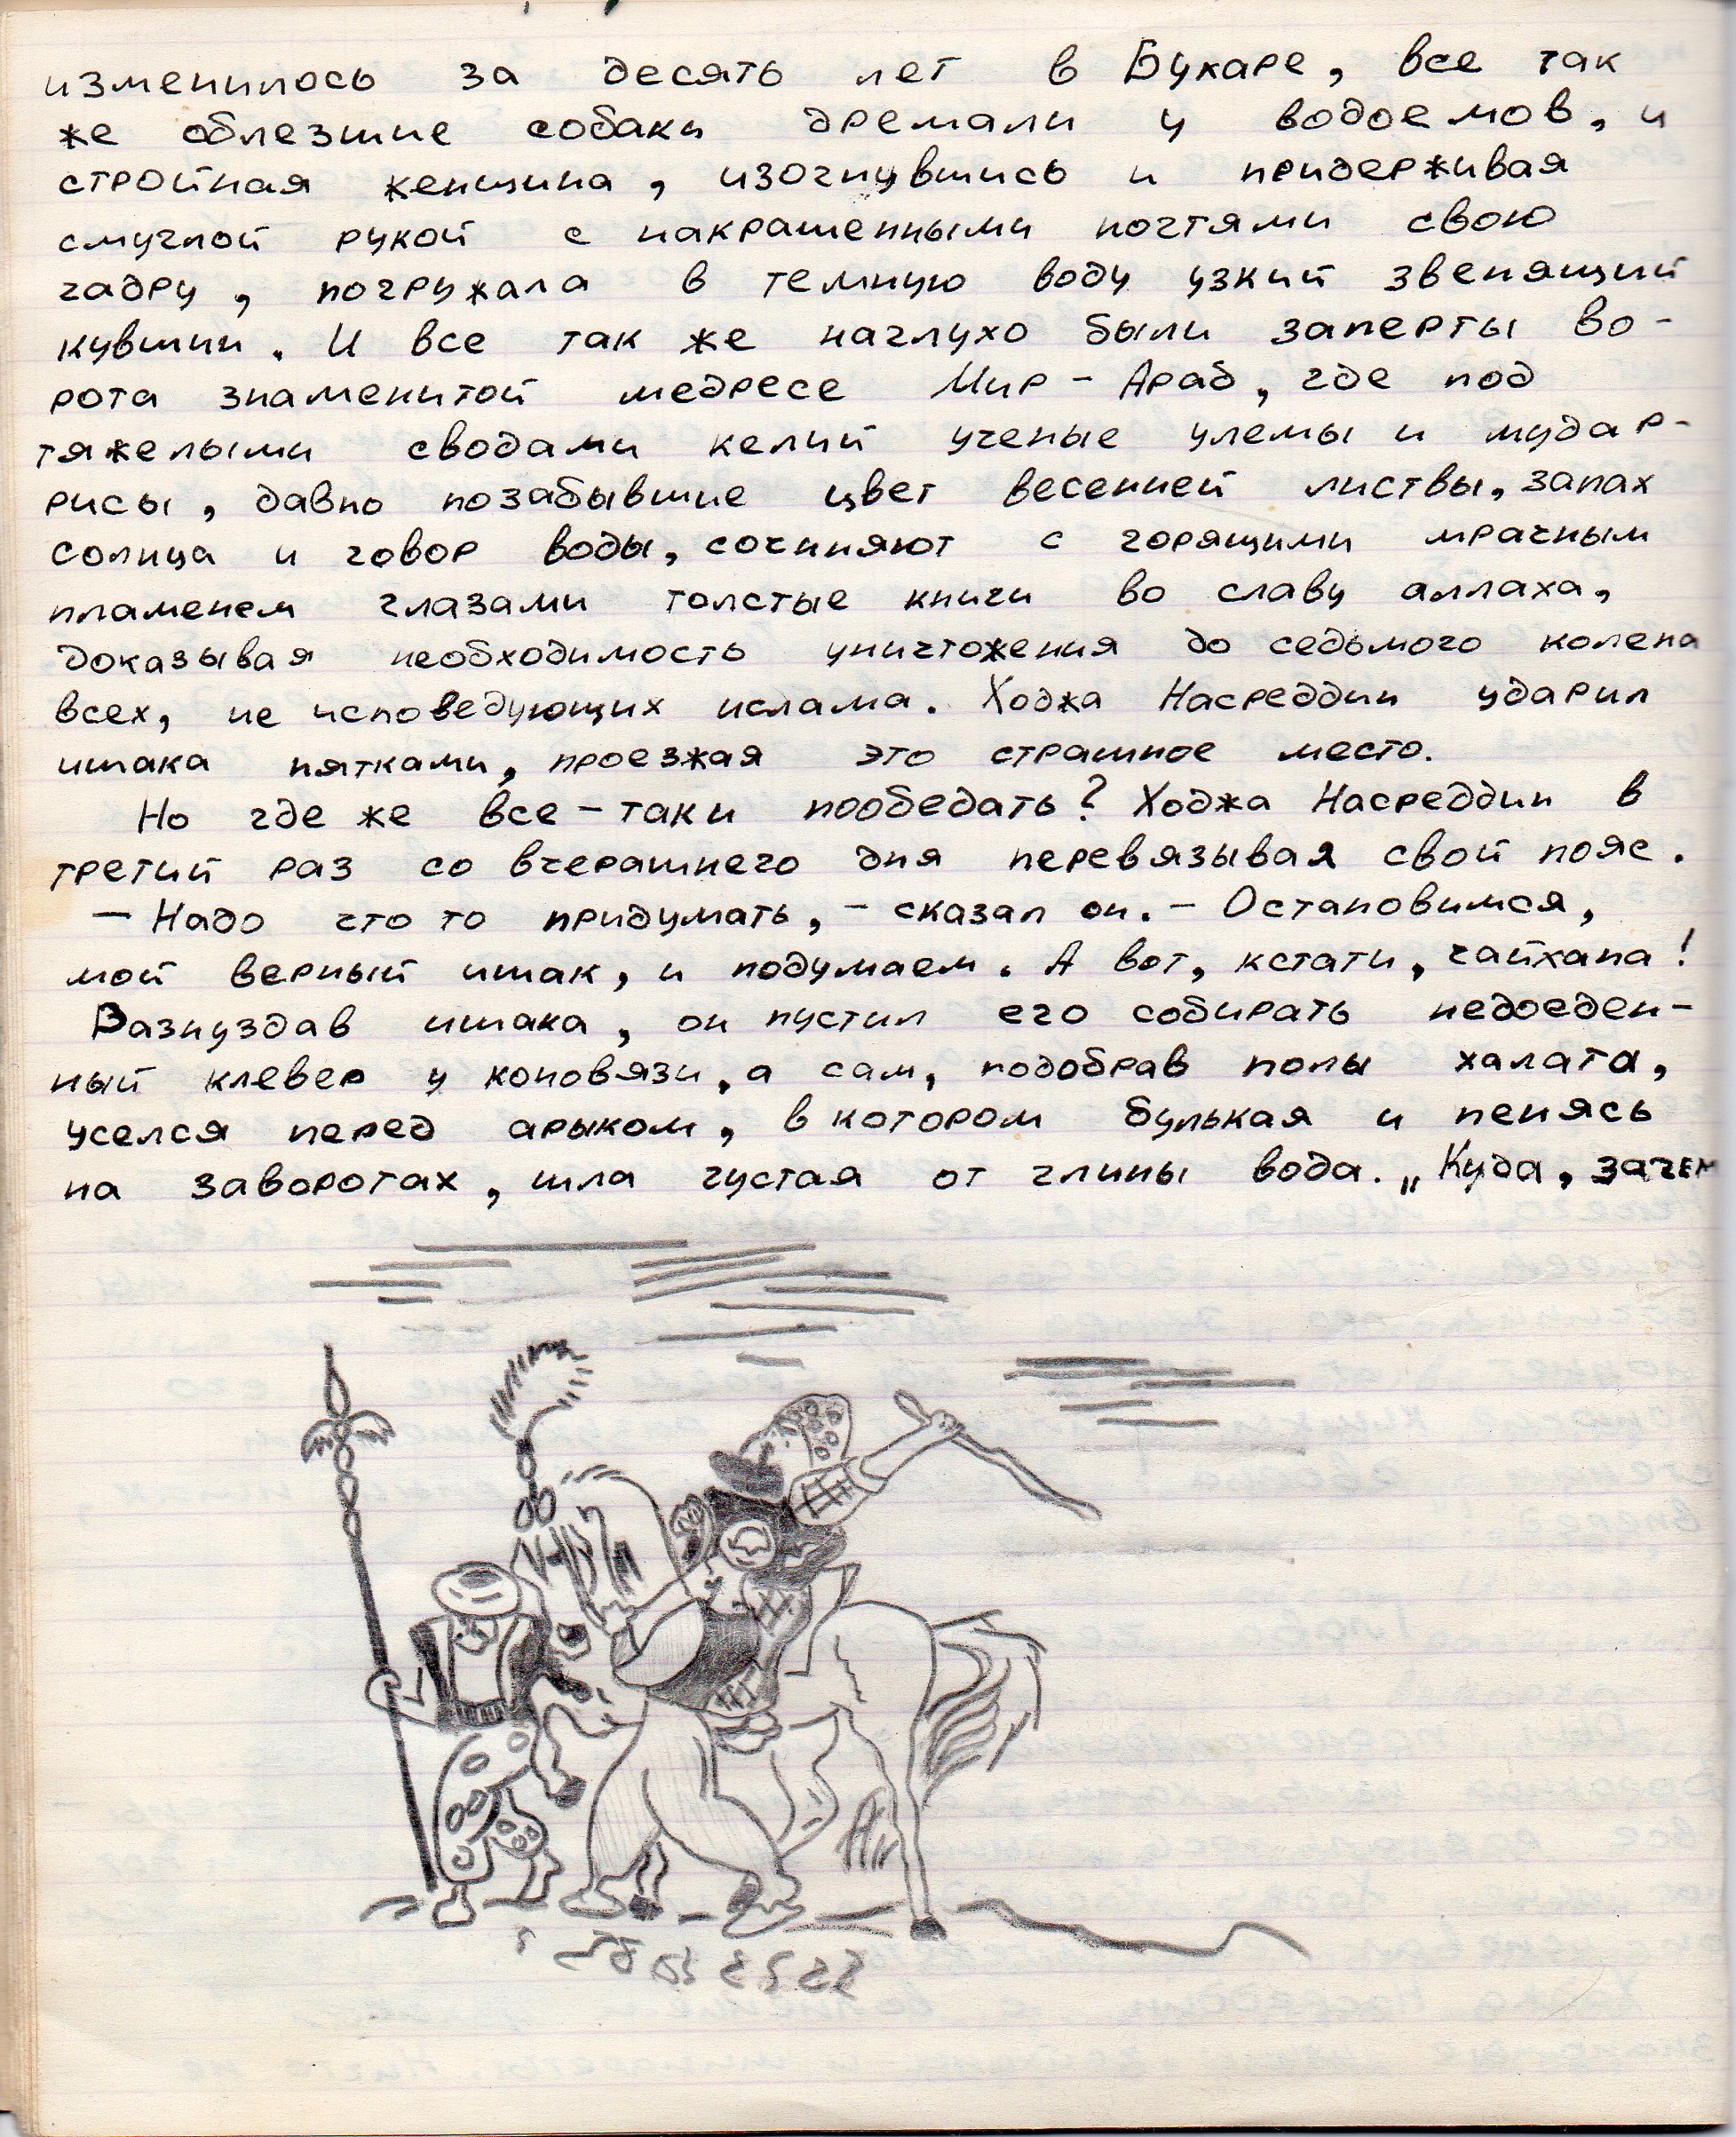 изменилось за десять лет в Бухаре, все так
же облезшие собаки дремали у водоемов, и
стройная женщина, изогнувшись и придерживая
смуглой рукой с накрашенными ногтями свою
чадру, погружала в темную воду узкий звенящий
кувшин. И все так же наглухо были заперты во-
рота знаменитой медресе Мир-Араб, где под
тяжелыми сводами келий ученые улемы и мудар-
рисы, давно позабывшие цвет весенней листвы, запах
солнца и говор воды, сочиняют с горящими мрачным
пламенем глазами толстые книги во славу аллаха,
доказывая необходимость уничтожения до седьмого колена
всех, не исповедующих ислама. Ходжа Насреддин ударил
ишака пятками, проезжая это страшное место.
Но где же все-таки пообедать? Ходжа Насреддин в
третий раз со вчерашнего дня перевязывая свой пояс.
— Надо что то придумать, - сказал он. - Остановимся,
мой верный ишак, и подумаем. А вот, кстати, чайхана!
Разнуздав ишака, он пустил его собирать недоеден-
ный клевер у коновязи, а сам, подобрав полы халата,
уселся перед арыком, в котором булькая и пенясь
на заворотах, шла густая от глины вода. „Куда, зачем